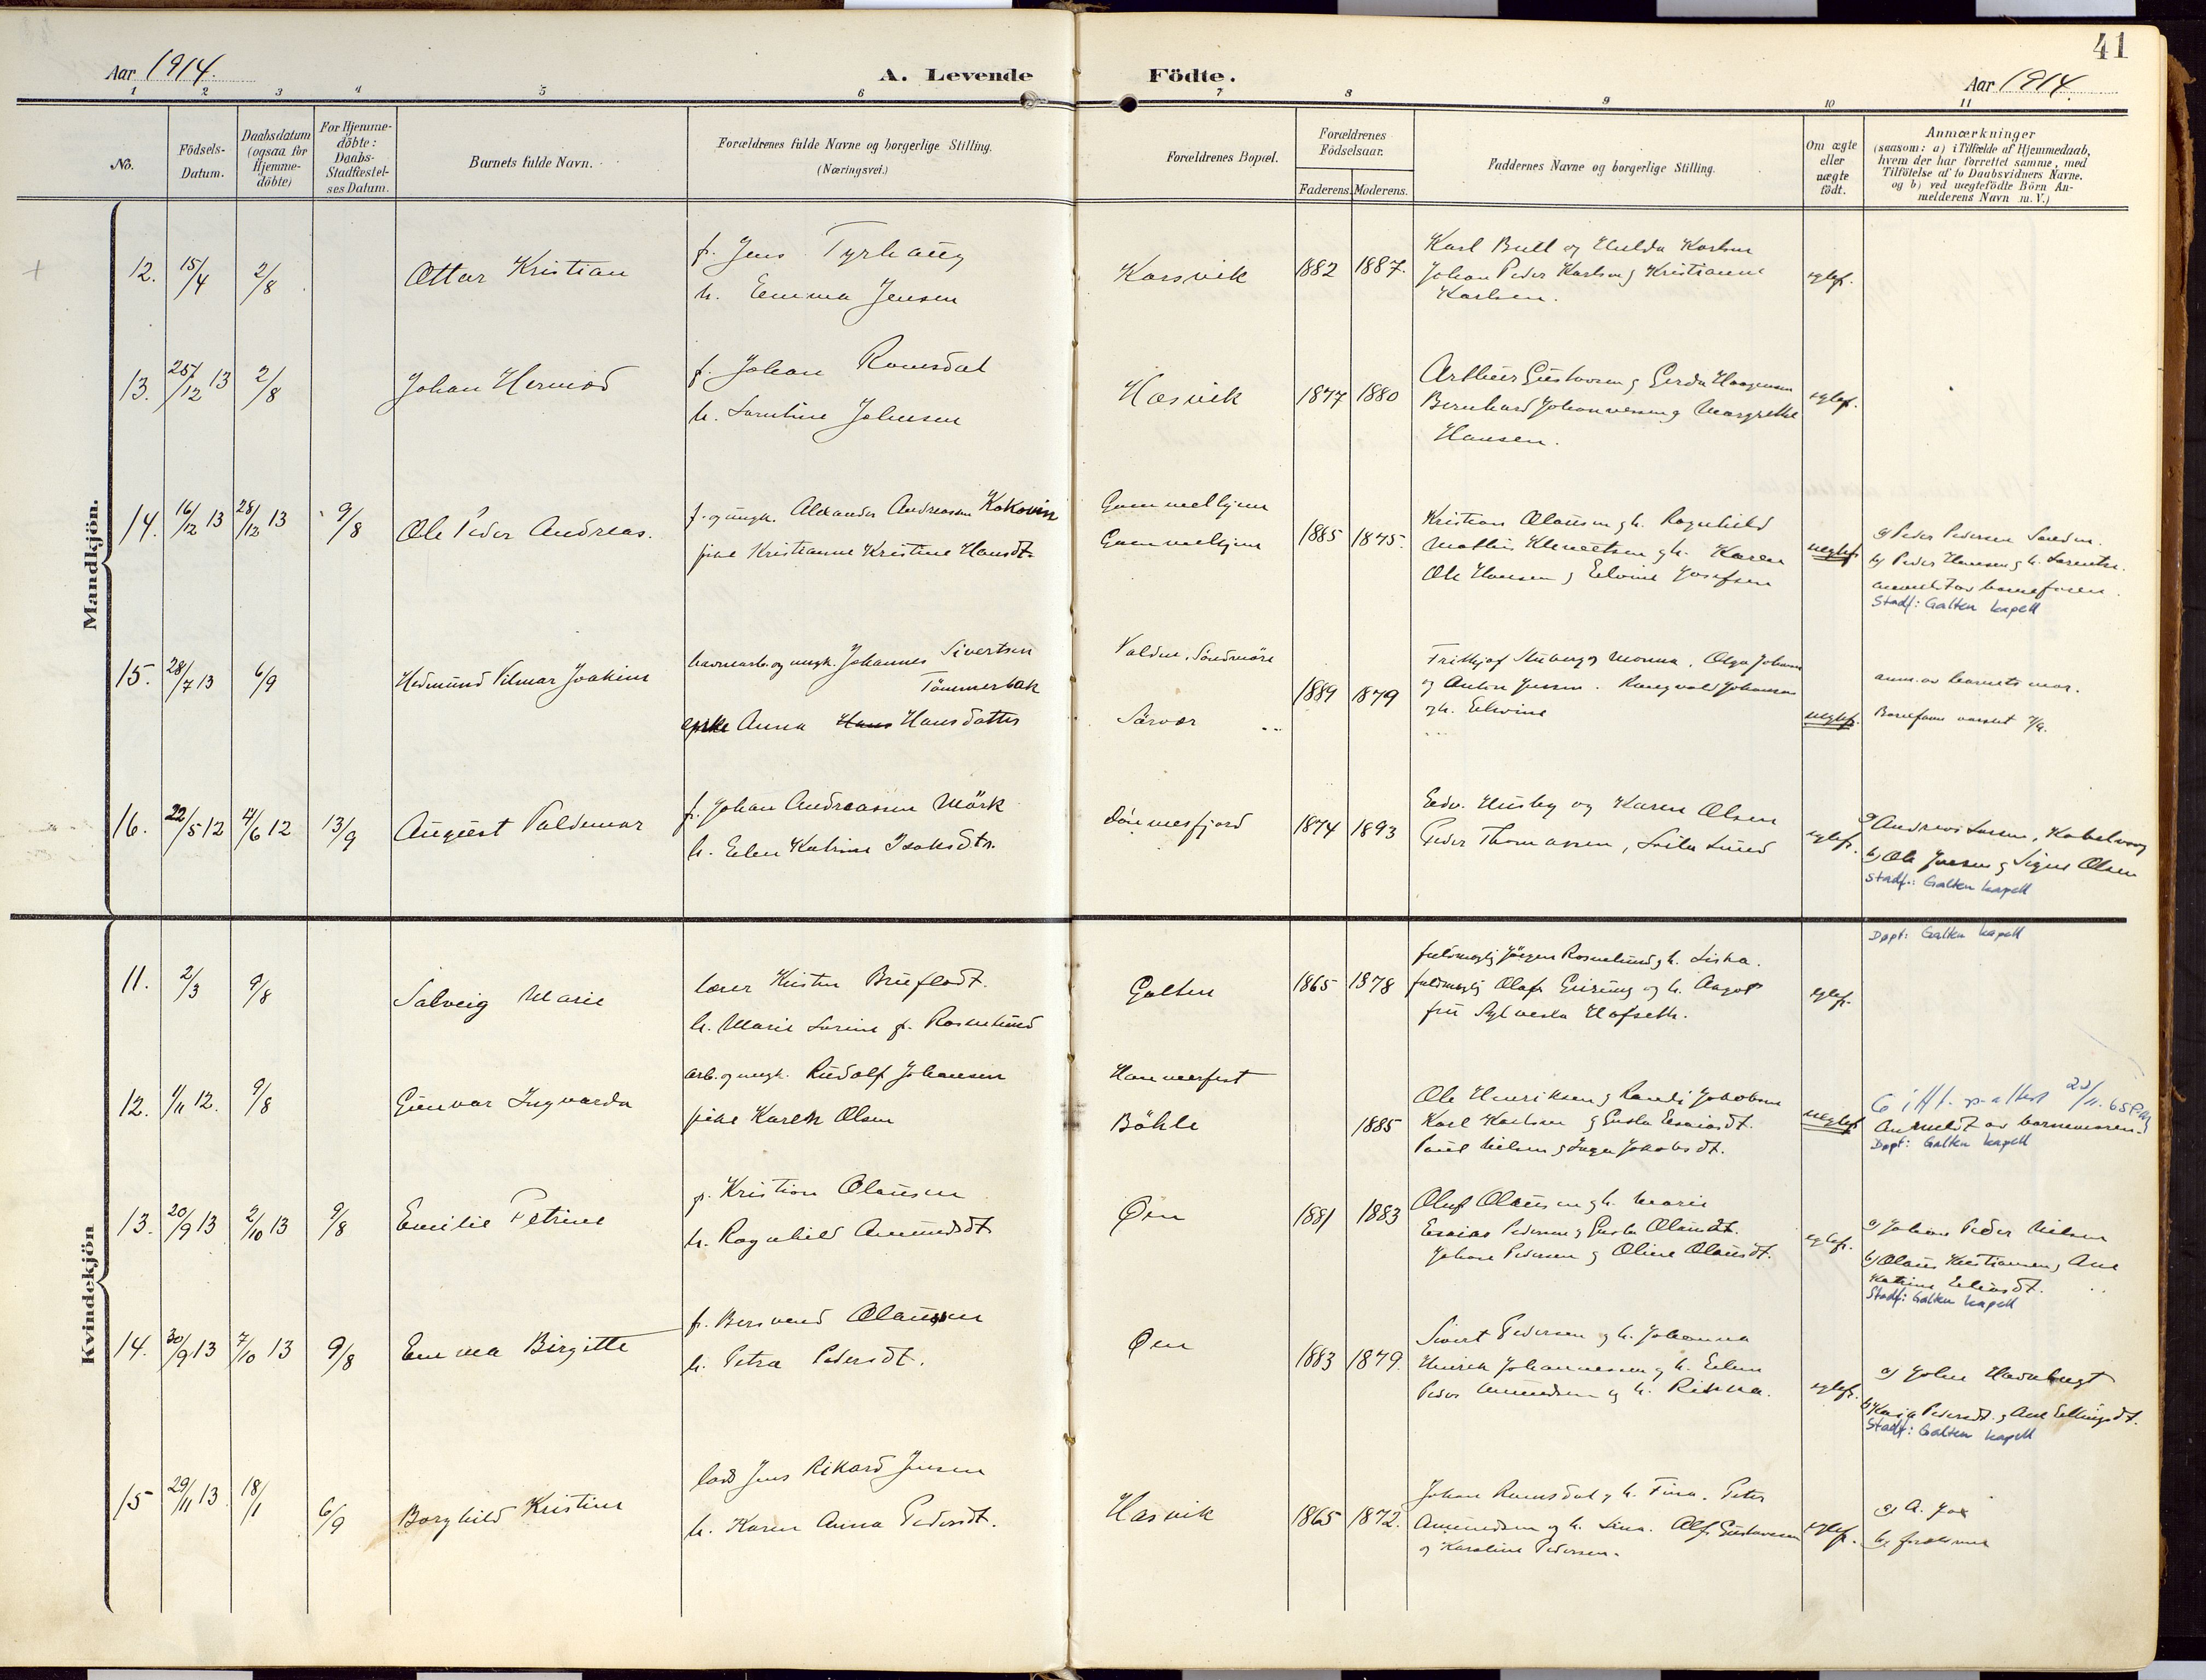 41
Aar 1914.
A. Levende Födte.
Aar 1914.
1 2 3 4 5 6 7 8 9 10 11
No.
Födsels-Datum.
Daabsdatum (ogsaa for Hjemme-döbte)
For Hjemme-döbte: Daabs-Stadfæstel-ses Datum.
Barnets fulde Navn.
Forældrenes fulde Navne og borgerlige Stilling. (Næringsvei.)
Forældrenes Bopæl.
Forældrenes Födselsaar.
Faderens. Moderens.
Faddernes Navne og borgerlige Stilling.
Om ægte eller uægte födt.
Anmærkninger
(saasom: a) i Tilfælde af Hjemmedaab, hvem der har forrettet samme, med Tilföielse af to Daabsvidners Navne. og b) ved uægtefödte Börn An-melderens Navn m. V.)
Mandkjön.
12. 15/4 2/8 Ottar Kristian
f. Jens Tyrhaug
h. Emma Jensen
Karsvik 1882 1887.
Karl Bull og Hulda Karlsen
Johan Peder Karlsen og Kristianne
Karlsen.
egtef.
13. 25/12 13 2/8 Johan Hermod
f. Johan Romsdal
h. Sarntine Johnsen
Hasvik 1877 1880
Arthur Gustavsen og Gerda Haagensen
Bernhard Johannesen og Margrethe
Hansen.
egtef.
14. 16/12 13 28/12 13 9/8 Ole Peder Andreas.
f. og ungk. Alexander Andreassen Kokovin
pike Kristianne Kristine Hansdt.
Gammelhjem
Gammelhjem
1885 1875.
Kristian Olausen og h. Ragnhild
Mathis Klemetsen og h. Karen
Ole Hansen og Edvine Josefsen
uegtef.
a) Peder Pedersen Sandm.
b) Peder Hansen og h. Larentse.
anmeldt av barnefaren.
Stadf: Galten kapell
15. 28/7 13 6/9 Hedmund Vilmar Joakim
havnearb. og ungk. Johannes Sivertsen
Tömmerbak
enke Anna Hans Hansdatter
Valden, Söndmöre
Sörvær
1889 1879
Frithjof Stuberg og Monna. Olga Johansen
og Anton Jensen. Ragnvald Johansen
og h. Edvine
uegtef.
anm. av barnets mor.
16. 22/5 12 4/6 12 13/9 August Valdemar
f. Johan Andreassen Mörk
h. Elen Katrine Isaksdtr.
Dönnesfjord 1874 1893
Edv. Husby og Karen Olsen
Peder Thomassen, Laila Lund
egtef.
a) Andreas Larsen, Kabelvaag
b) Ole Jensen og Signe Olsen
Stadf.: Galten kapell
Kvindekjön
11. 2/3 9/8 Solveig Marie
lærer Kristen Brufladt.
h. Marie Lorine f. Rosenlund
Galten 1865 1878
fuldmegtig Jörgen Rosenlund og h. Liska.
fuldmegtig Olaf Grirung og h. Aagot
fru Sylvesta Hofseth.
egtef.
Døpt: Galten kapell
12. 4/11 12. 9/8 Gunvor Ingvarda
arb. og ungk. Rudolf Johansen
pike Karen Olsen
Hammerfest
Böhle
1885
Ole Henriksen og Randi Jakobsen
Karl Karlsen og Gusta Esaiasdt.
Paul Nilsen og Inga Jakobsdt.
uegtef.
Anmeldt av barnemoren.
Døpt: Galten kapell
13. 20/9 13 2/10 13 9/8 Emilie Petrine
f. Kristian Olausen
h. Ragnhild Amundsdt
Øen 1881 1883
Oluf Olausen og h. Marie
Esaias Pedersen og Gusta Olausdt.
Johan Pedersen og Oline Olausdt.
egtef.
a) Johan Peder Nilsen
b) Olaus Kristiansen, Ane
Katrine Eliasdt.
Stadf: Galten kapell
14. 30/9 13 7/10 13 9/8 Emma Birgitte
f. Bersvend Olaussen
h. Petra Pedersdt.
Øen 1883 1879.
Sivert Pedersen og h. Johanna
Henrik Johannessen og h. Elen
Peder Amundsen og h. Rikka.
egtef.
a) John Havnbugt
b) Kaja Pedersdt. og Ane Ellingsdt.
Stadf: Galten kapell
15 29/11 13 18/1 6/9 Borghild Kristine
lods Jens Rikard Jensen
h. Karen Anna Pedersdt.
Hasvik 1865 1872.
Johan Romsdal og h. Tina. Peter
Amundsen og h. Lina. Alf. Gustavsen
og Karoline Pedersen.
egtef.
a) A. Fox
b) forældrene